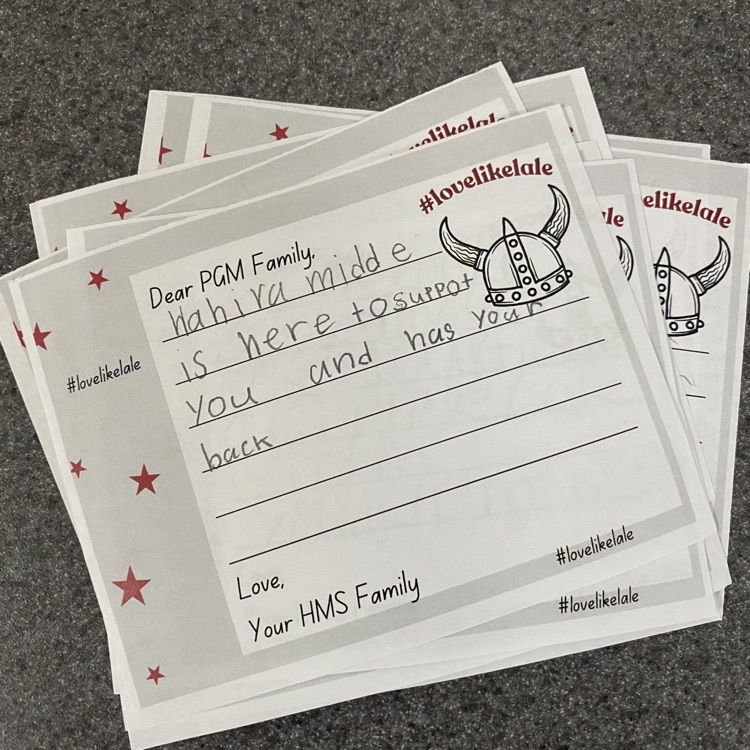 #lovelikelale
Dear PGM Family,
Hahira midd e
is here to suppot
you and has your
back
Love,
Your HMS Family
#lovelikelale
#lovelikelale
#lovelikelale
ovelikelale
le
elikelale